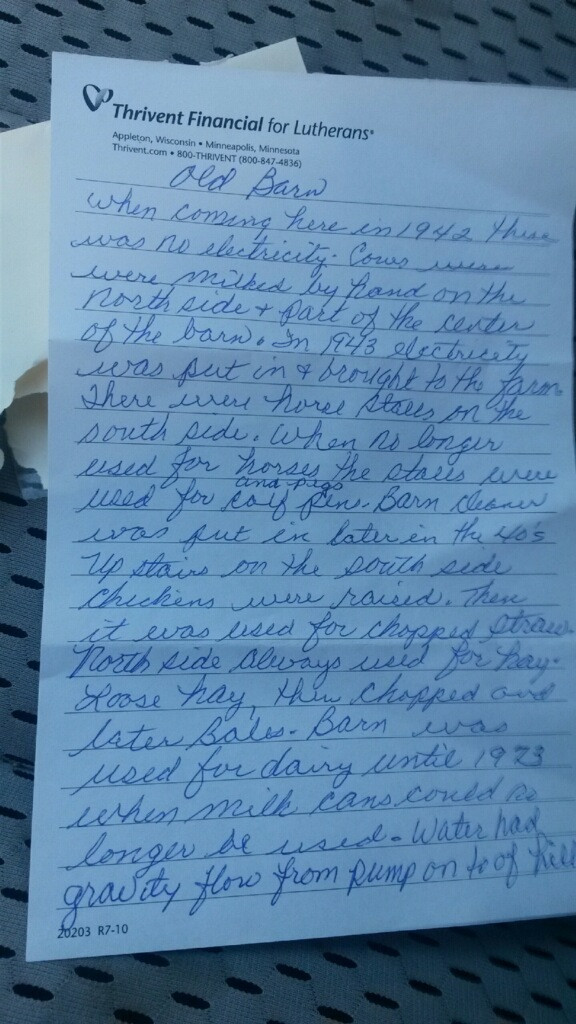 Thrivent Financial for Lutherans®
Appleton, Wisconsin • Minneapolis, Minnesota
Thrivent.com • 800-THRIVENT (800-847-4836)
Old Barn
When coming here in 1942 there
was no electricity. Cows were
were milked by hand on the
North side + part of the center
of the barn. In 1943 electricity
was put in & brought to the farm.
There were horse stalls on the
south side. When no longer
used for horses the stalls were
and pigs
used for calf pens. Barn cleaner
was put in later in the 40's
Up stairs on the south side
chickens were raised. Then
it was used for chopped straw.
North side always used for hay.
Loose hay, then chopped and
later Bales. Barn was
used for dairy until 1973
when milk cans could no
longer be used. Water had
gravity flow from pump on to of hill
20203 R7-10